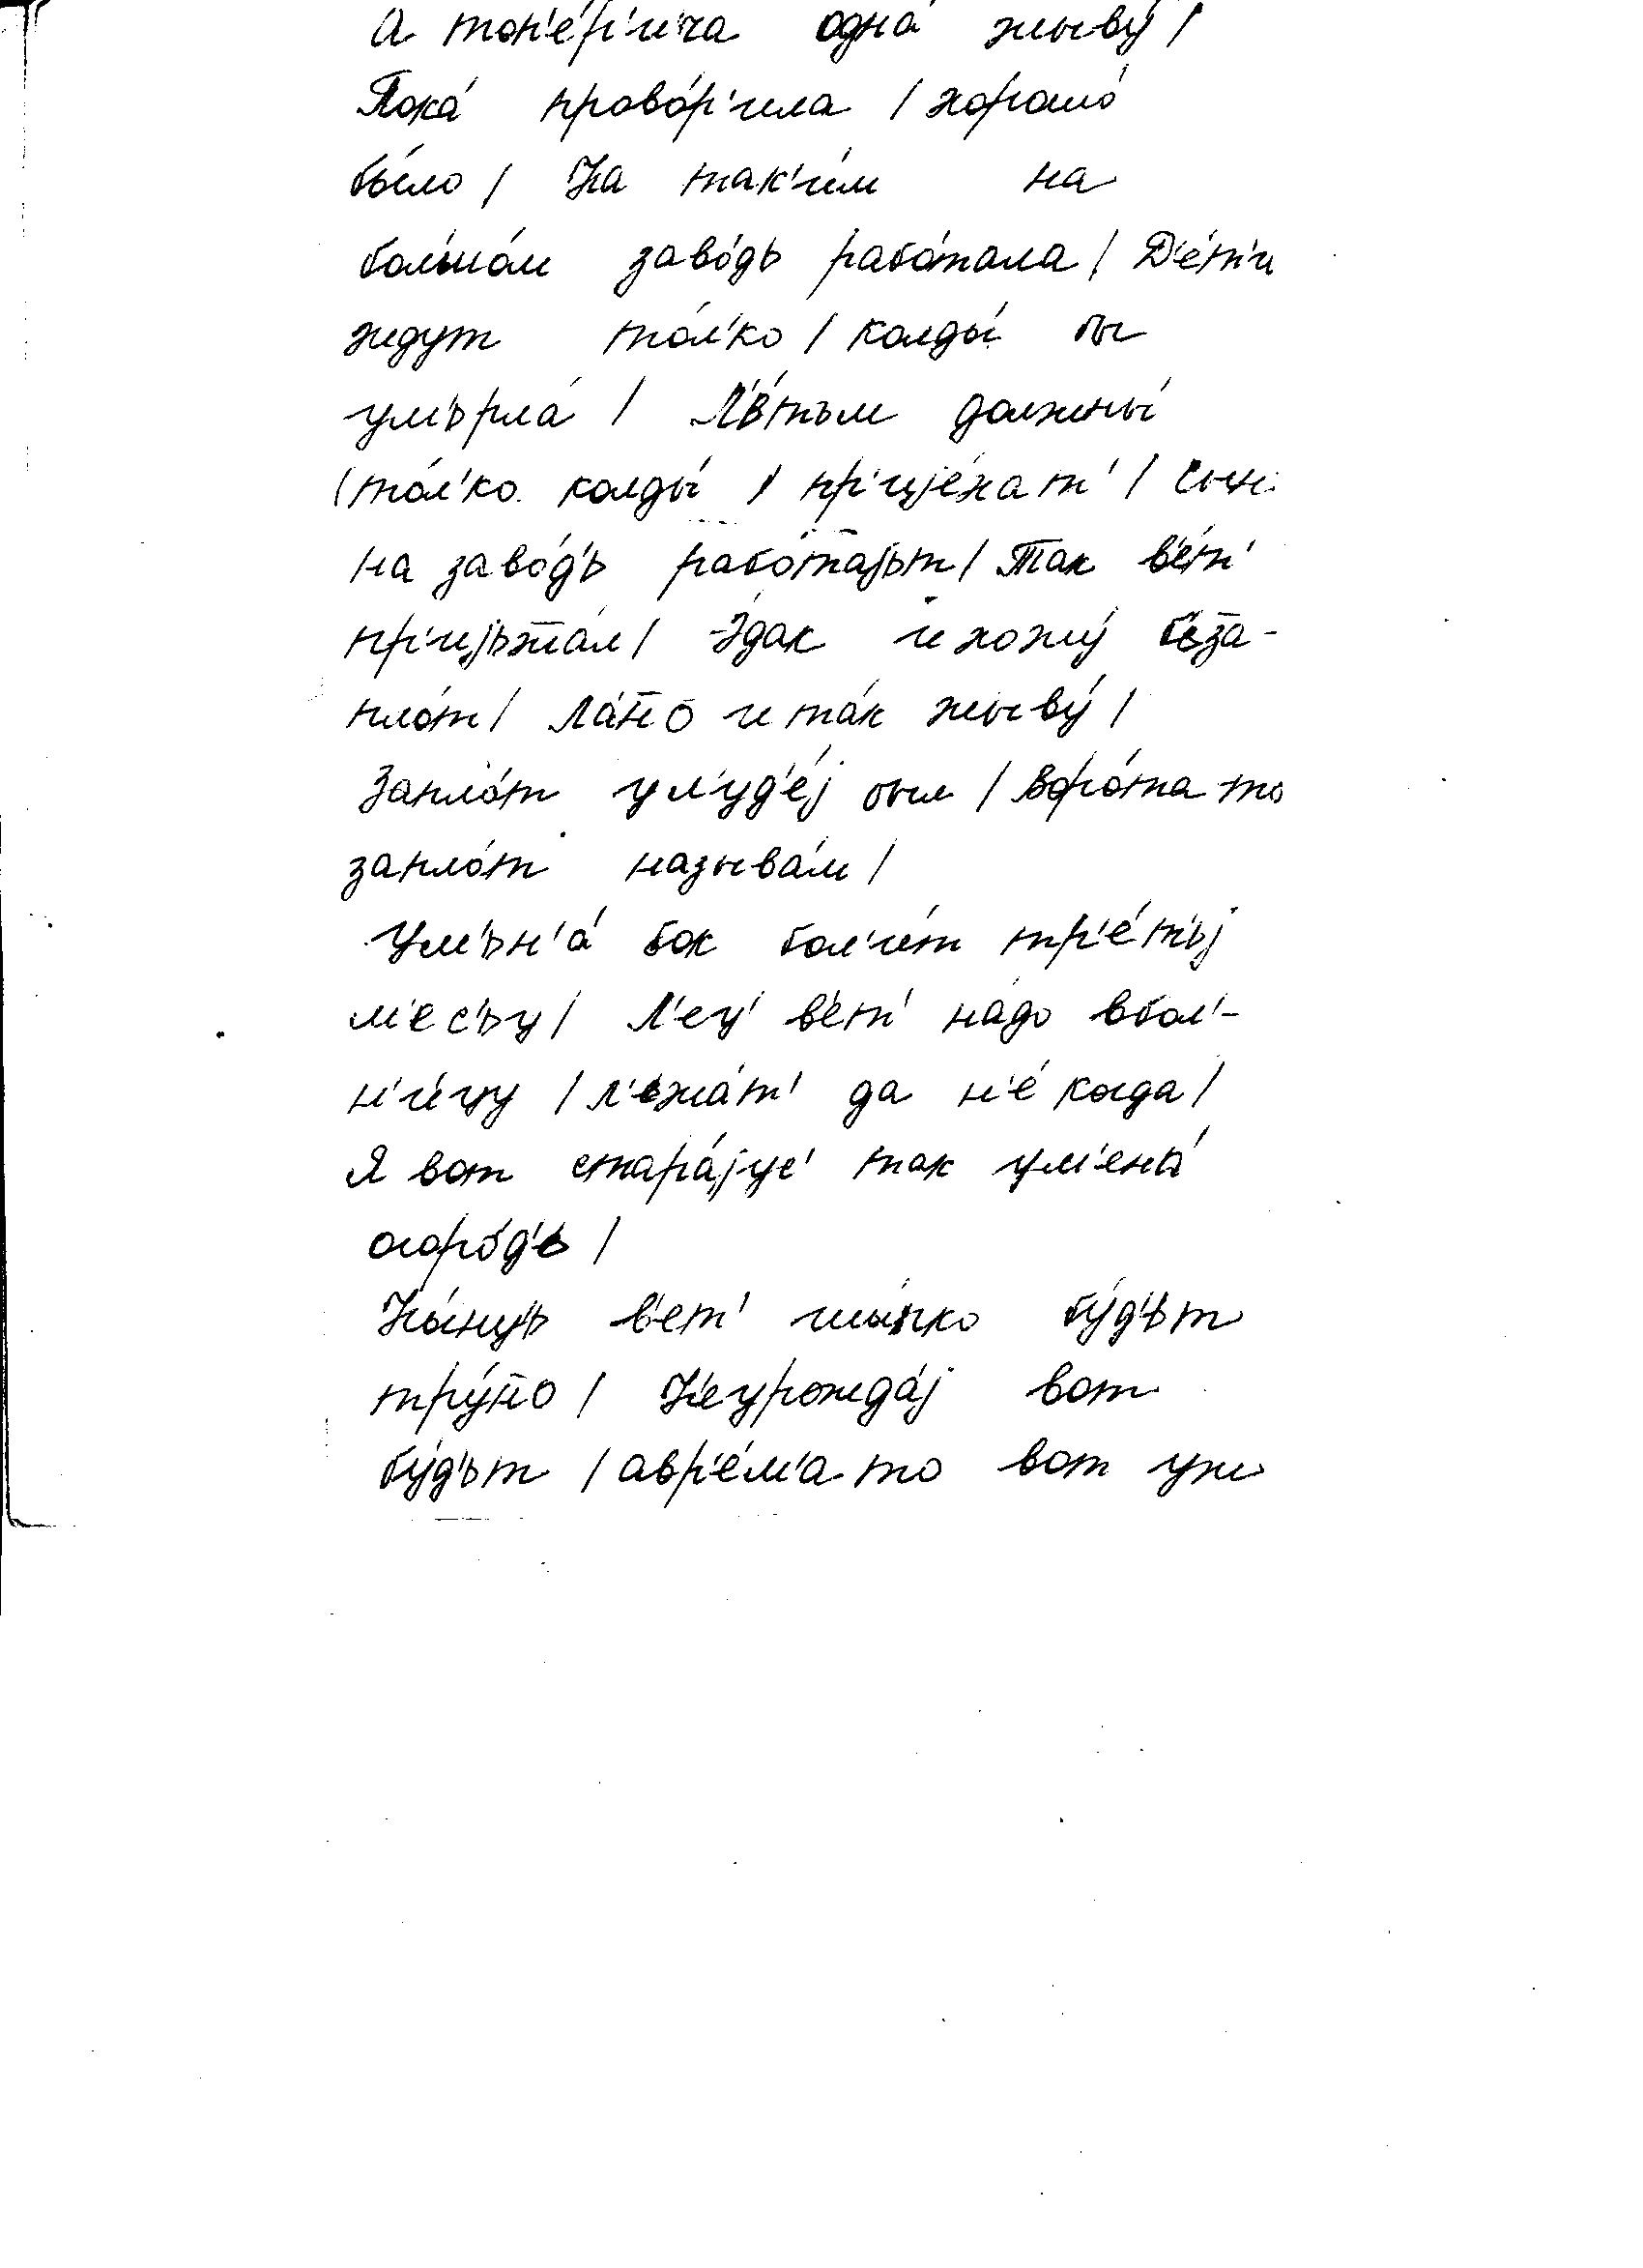 А топ'е́р'и́ча одна́ жыву́ /
Пока́ прово́р'ила / хорошо́
бы́ло / На так'и́м на
бол'шо́м заво́дь рабо́тала / Д'е́т'и
ждут то́л'ко / колды́ бы
умьрла́ / Л'е́тъм должны́
/ то́л'ко колды́ / пр'ијéхат' /
на заво́д'ь рабо́тајьт / Так в'ет'
пр'ијьжжа́л / Э́дак и хожу́ б'ьза-
пло́т / Ла́н̄о и та́к жыву́ /
Запло́т у л'уд'е́ј был / Воро́та то
запло́т называ́м /
У м'ьн'а́ бок бол'и́т тр'е́т'ьј
м'е́с'ьц / Л'еч' в'ет' на́до в бол'-
н'и́цу / л'ежа́т' да н'е́когда /
Я вот стара́јус' так у м'ена́
огоро́д'ь /
Ны́нць в'ет' шы́пко бу́д'ьт
тру́н̄о / Н'еурожда́ј вот
бу́д'ьт / а вр'е́м'а то вот уж